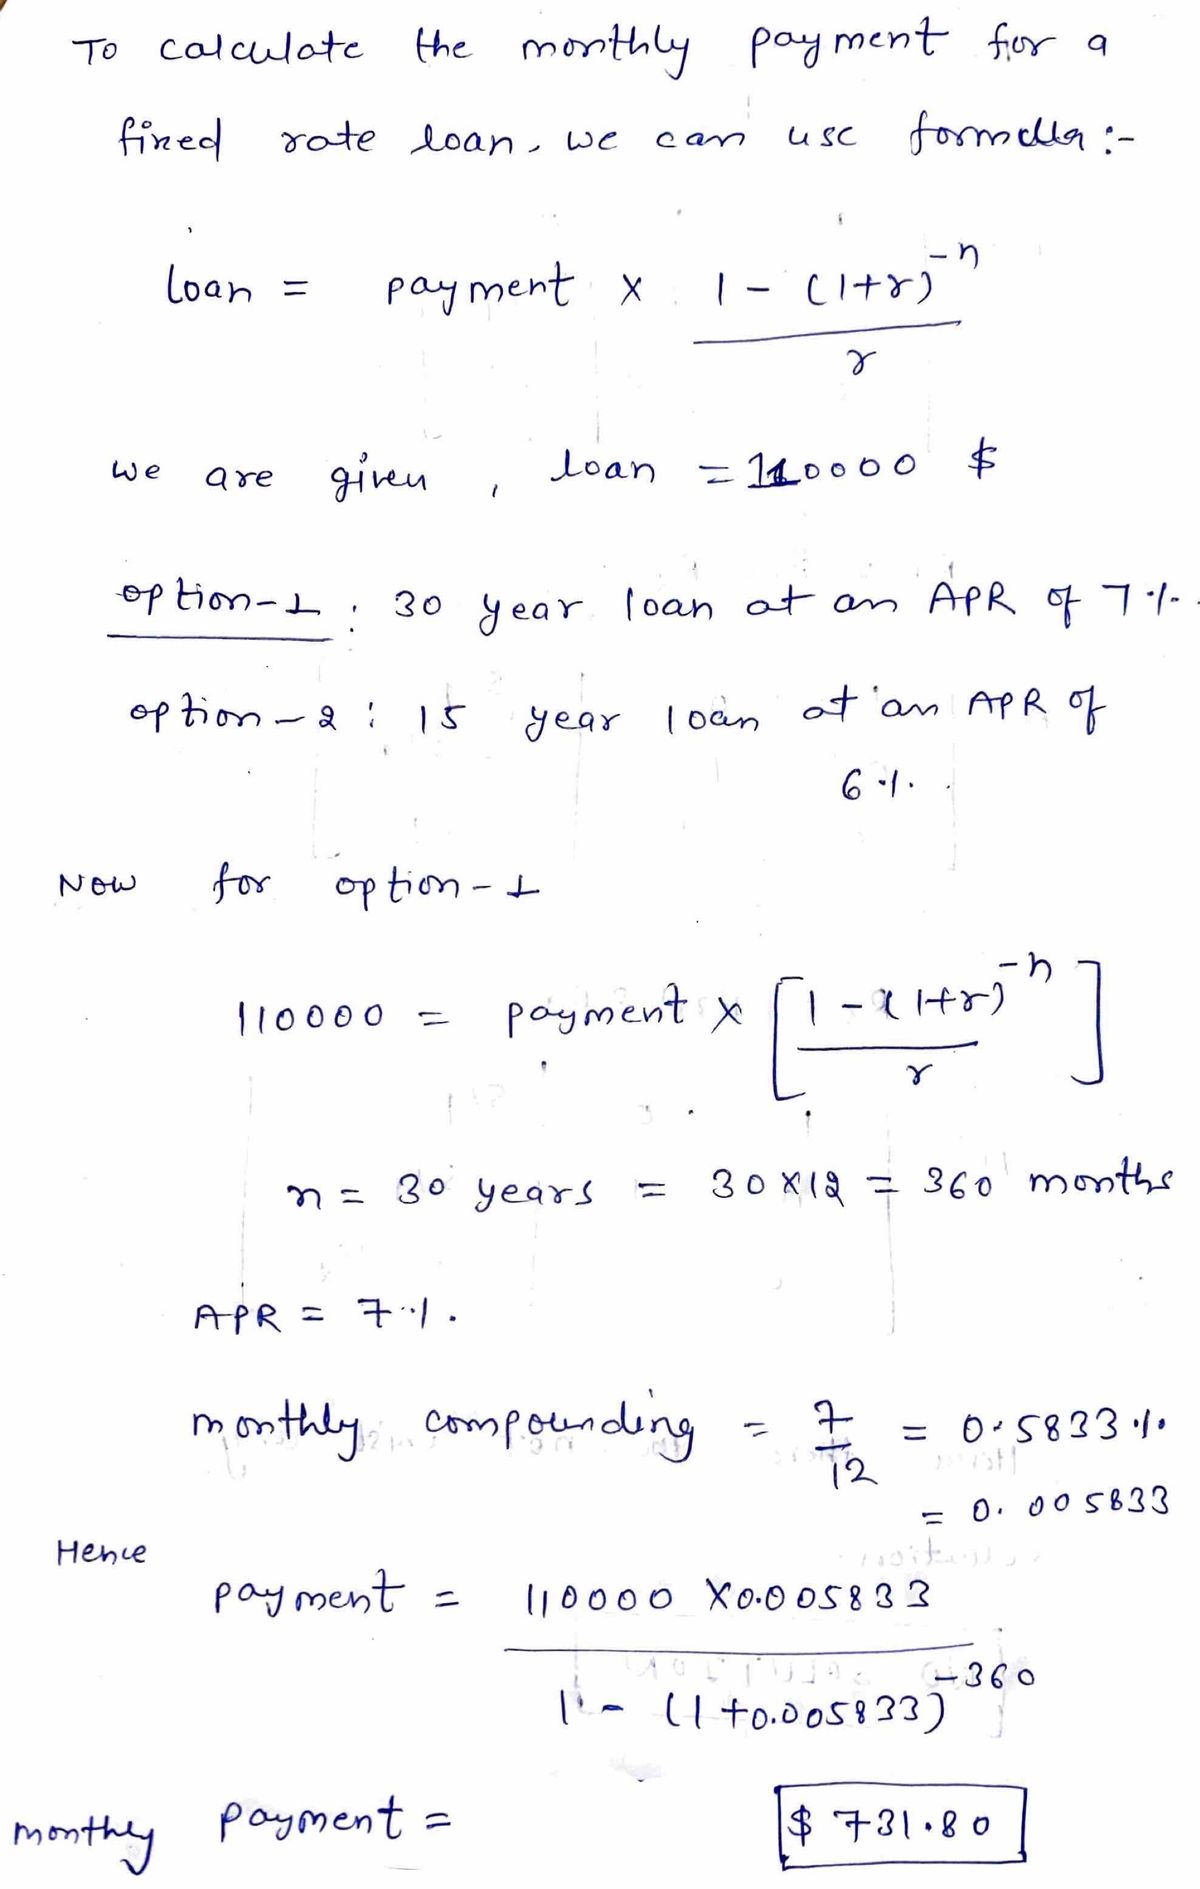 To calculate the monthly payment for a
fixed rate loan, we can use formula :-
loan = payment x 1 - (1+r)^-n
r
we are given, loan = 110000 $
option-1 : 30 year loan at an APR of 7%.
option-2 : 15 year loan at an APR of
6%.
Now for option-1
110000 = payment x [1 - (1+r)^-n]
r
n = 30 years = 30x12 = 360 months
APR = 7%.
monthly compounding = 7/12 = 0.5833%
= 0.005833
Hence
payment = 110000 x0.005833
1 - (1+0.005833)^-360
monthly payment = $ 731.80